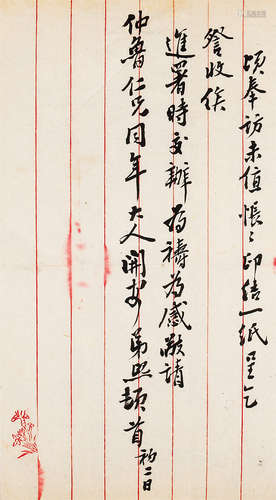 頃奉訪未值悵〻印結一紙呈乞
詧收俟
進署時交辦為禱為感敬請
仲魯仁兄同年大人開安 弟熙頓首 初二日